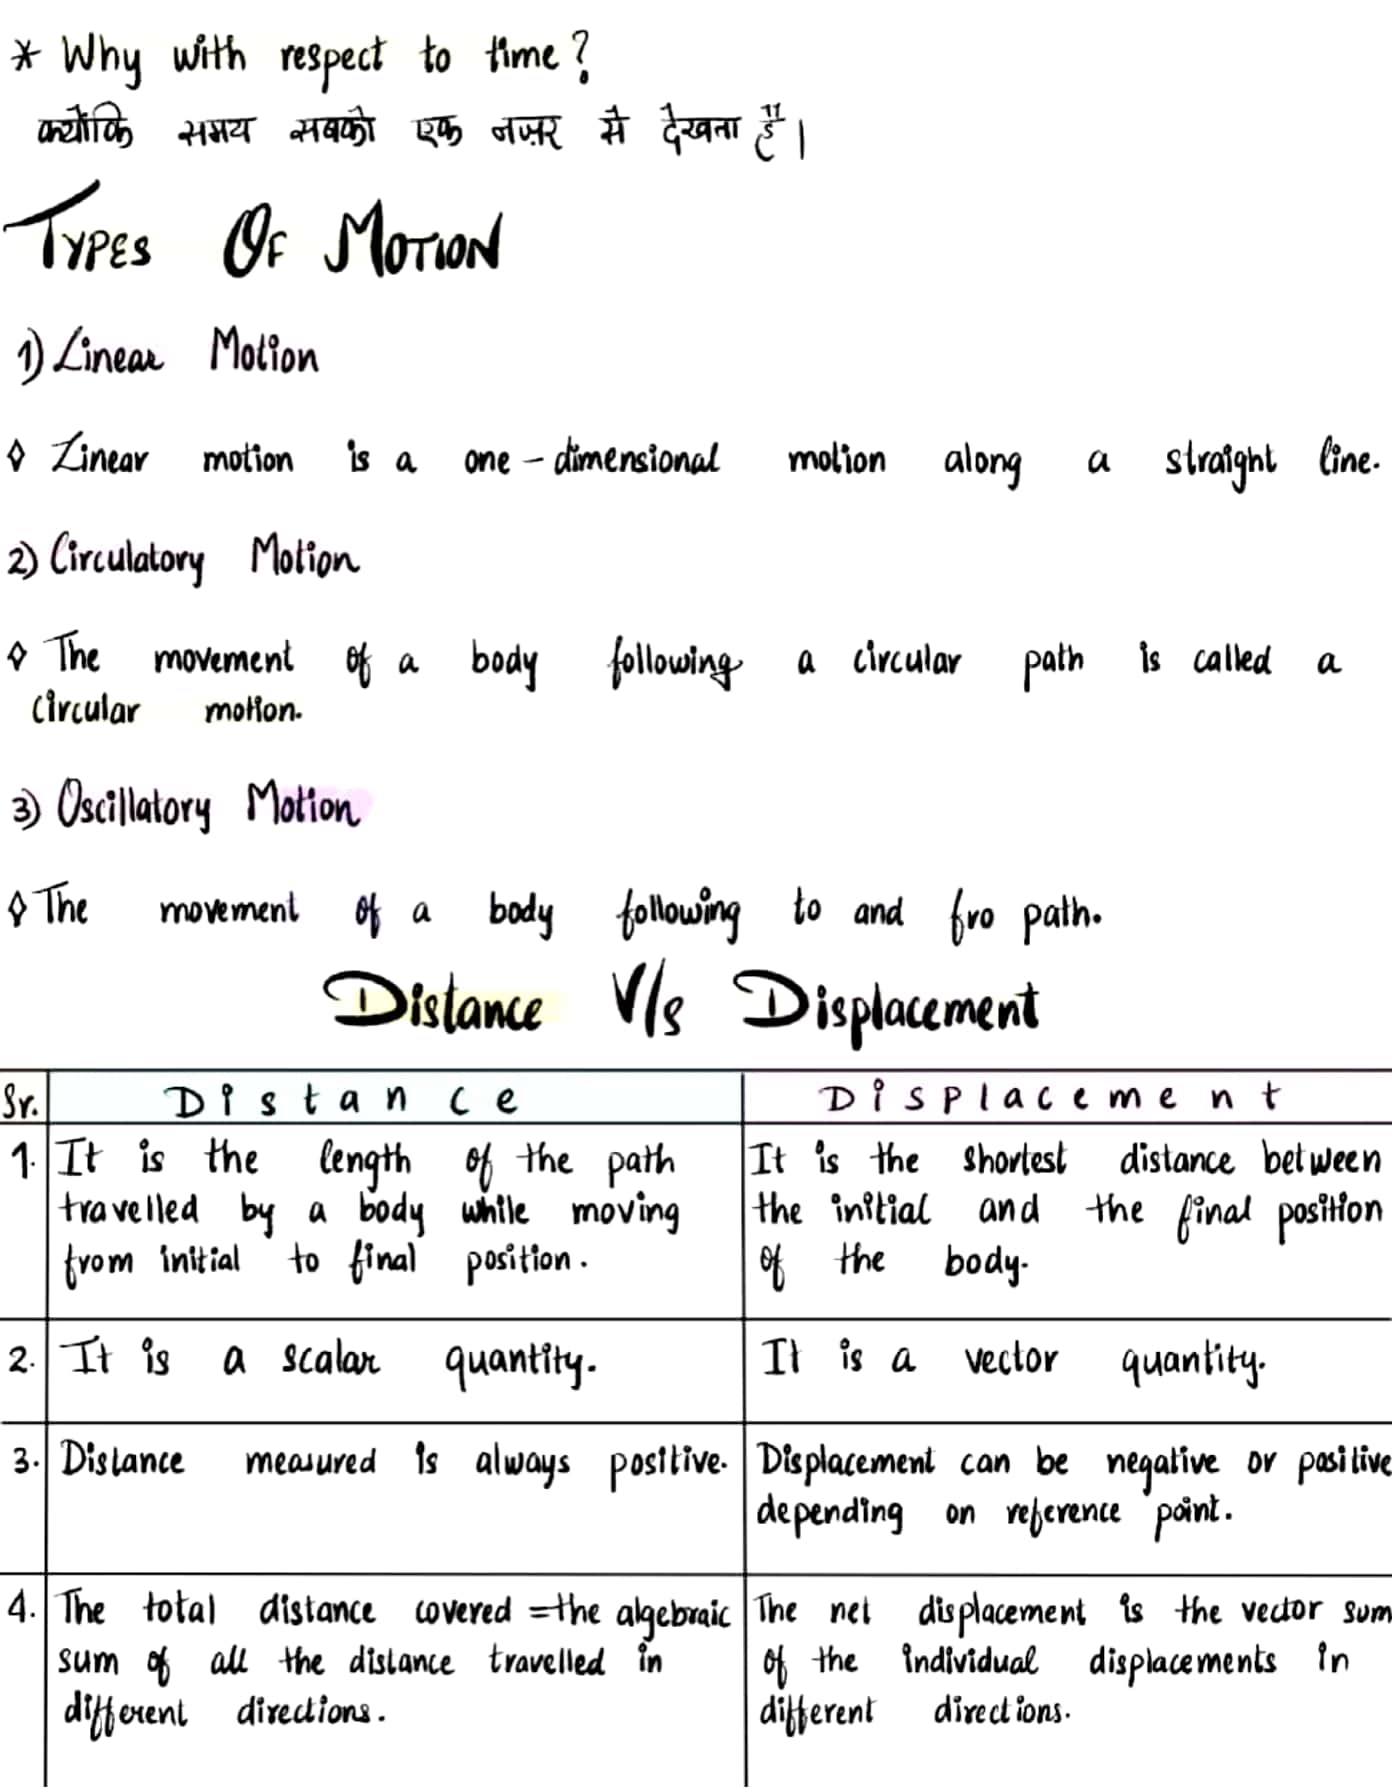 * Why with respect to time?
क्योंकि समय सबको एक नज़र से देखता है।
TYPES OF MOTION
1) Linear Motion
◊ Linear motion is a one-dimensional motion along a straight line.
2) Circulatory Motion
◊ The movement of a body following a circular path is called a
circular motion.
3) Oscillatory Motion
◊ The movement of a body following to and fro path.
Distance V/s Displacement
Sr. Distance Displacement
1. It is the length of the path
travelled by a body while moving
from initial to final position.
It is the shortest distance between
the initial and the final position
of the body.
2. It is a scalar quantity.
It is a vector quantity.
3. Distance measured is always positive.
Displacement can be negative or positive
depending on reference point.
4. The total distance covered = the algebraic
sum of all the distance travelled in
different directions.
The net displacement is the vector sum
of the individual displacements in
different directions.